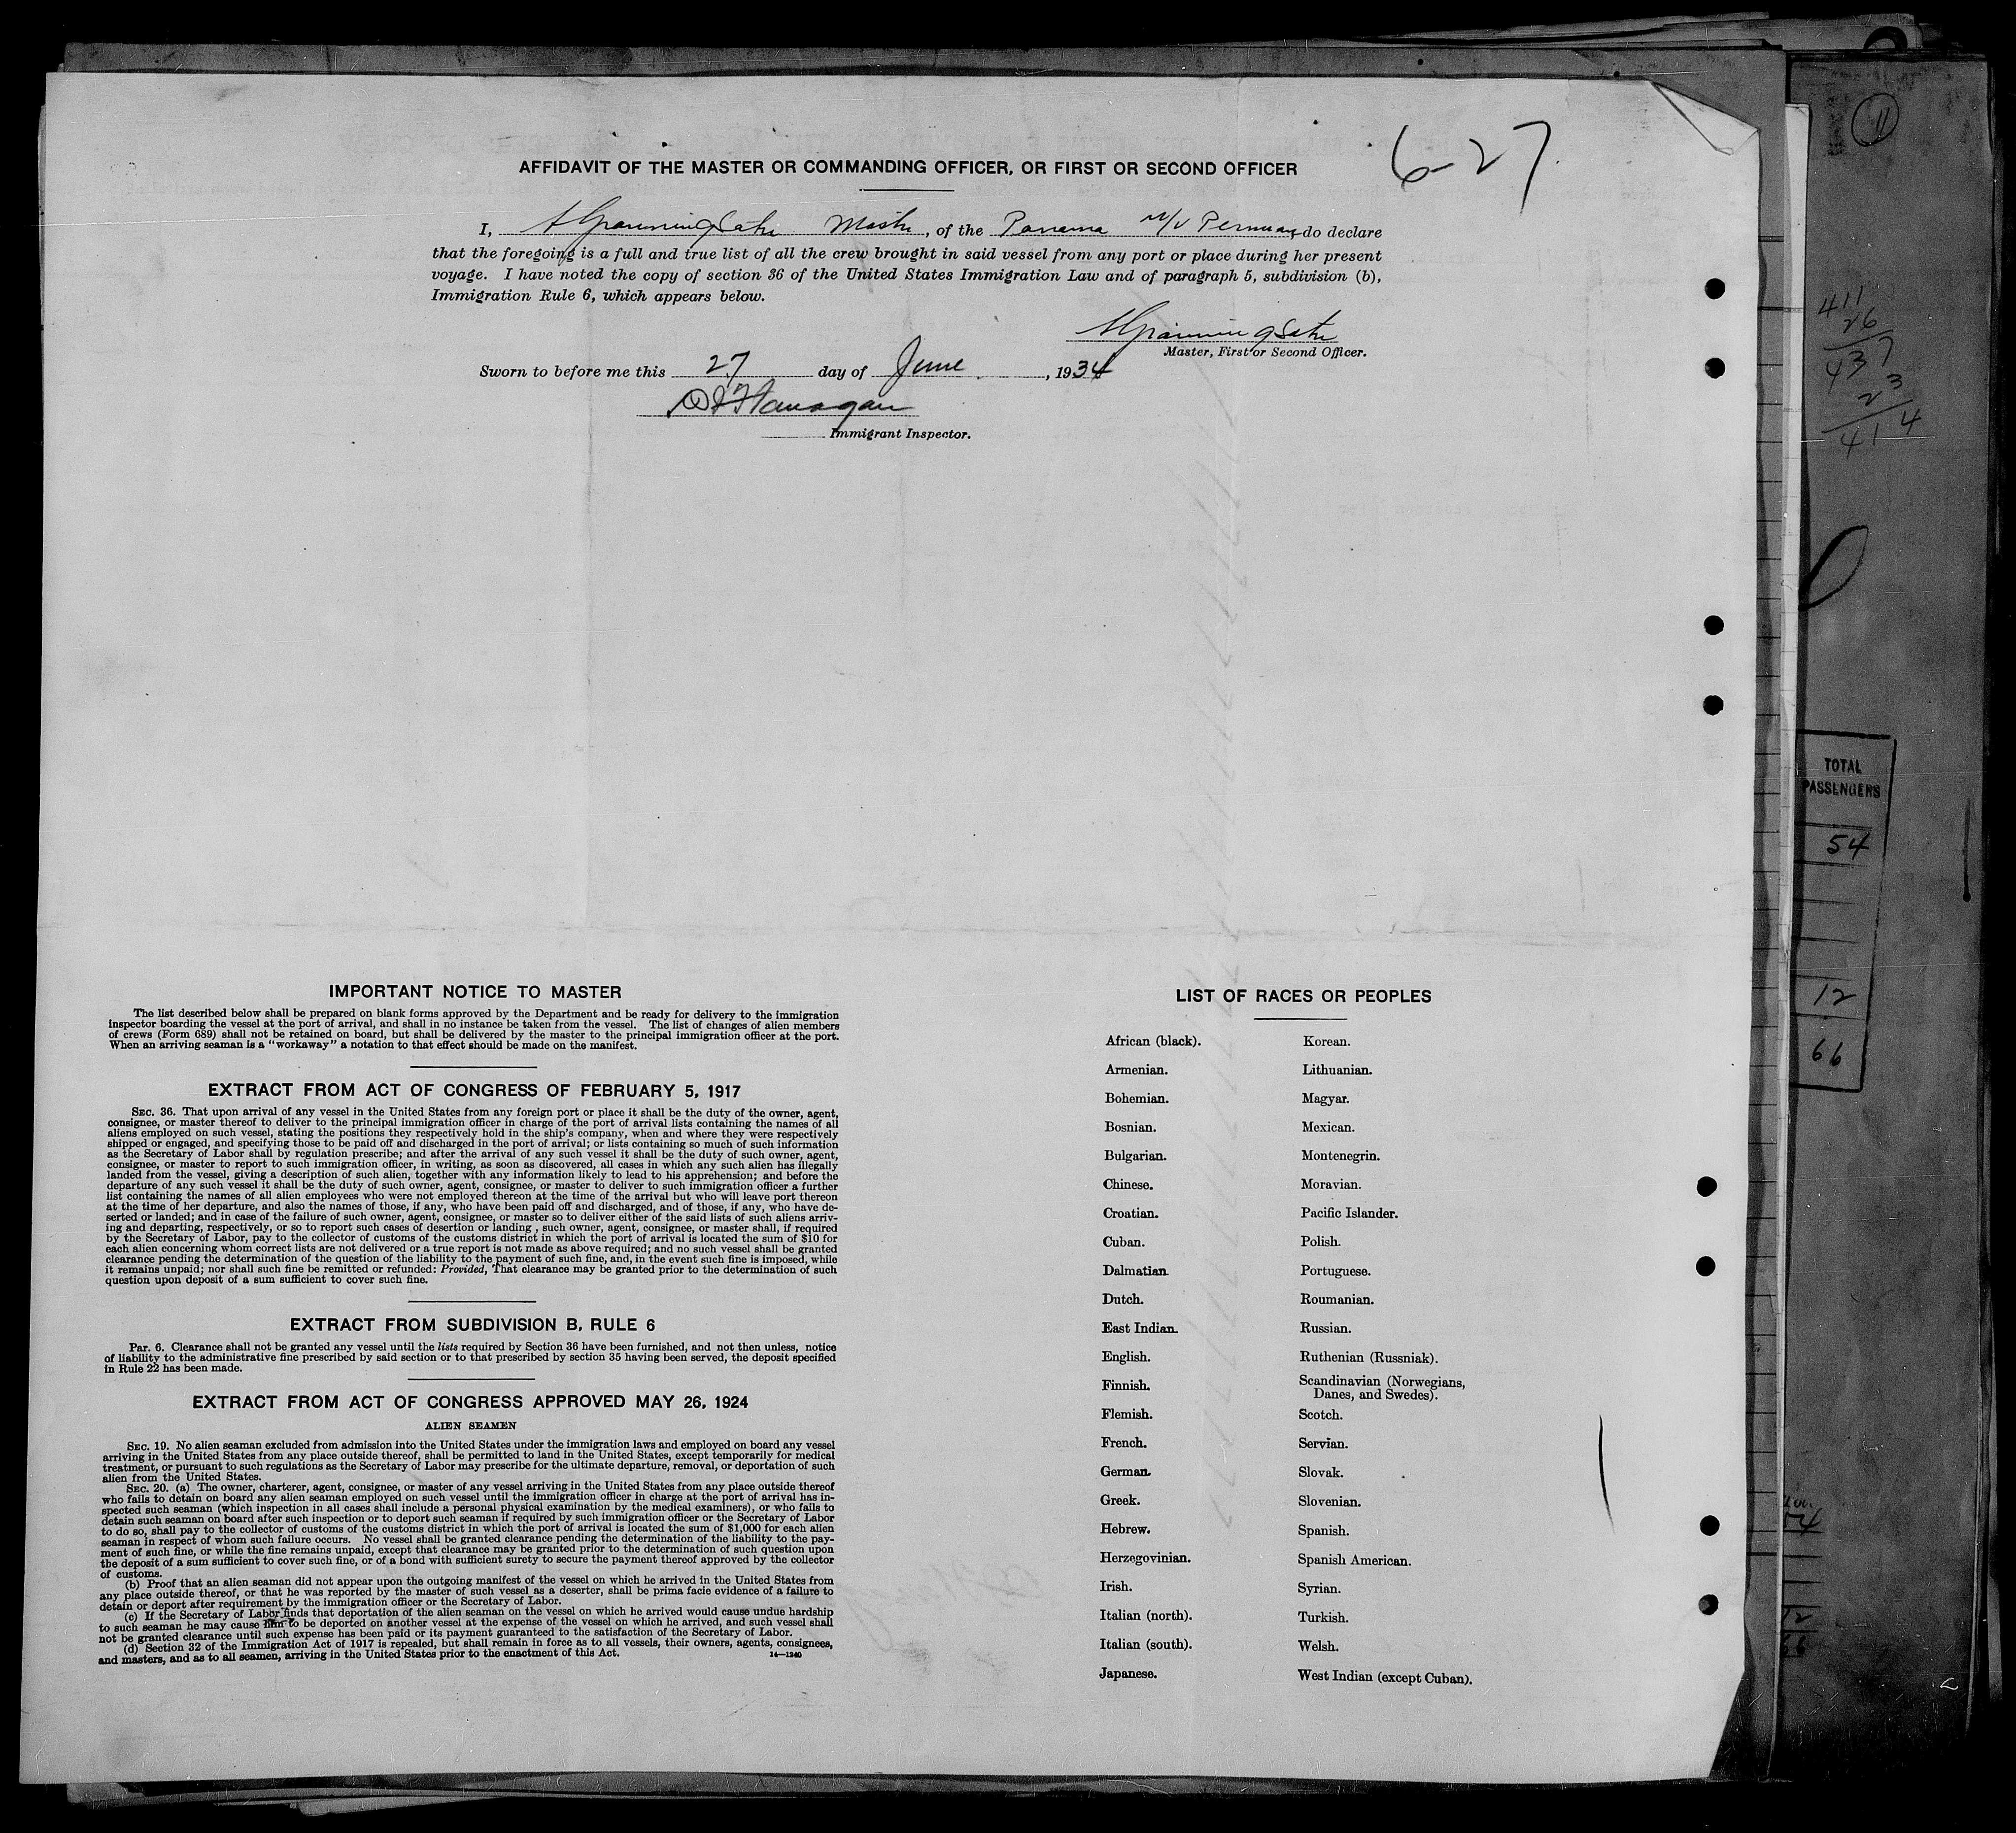 11
6-27
AFFIDAVIT OF THE MASTER OR COMMANDING OFFICER, OR FIRST OR SECOND OFFICER
I, Master, of the Panama M/V do declare
that the foregoing is a full and true list of all the crew brought in said vessel from any port or place during her present
voyage. I have noted the copy of section 36 of the United States Immigration Law and of paragraph 5, subdivision (b),
Immigration Rule 6, which appears below.
Master, First or Second Officer.
Sworn to before me this 27 day of June, 1934
Flanagan
Immigrant Inspector.
411
26
437
23
414
TOTAL
PASSENGERS
54
12
66
IMPORTANT NOTICE TO MASTER
The list described below shall be prepared on blank forms approved by the Department and be ready for delivery to the immigration
inspector boarding the vessel at the port of arrival, and shall in no instance be taken from the vessel. The list of changes of alien members
of crews (Form 689) shall not be retained on board, but shall be delivered by the master to the principal immigration officer at the port.
When an arriving seaman is a "workaway" a notation to that effect should be made on the manifest.
EXTRACT FROM ACT OF CONGRESS OF FEBRUARY 5, 1917
SEC. 36. That upon arrival of any vessel in the United States from any foreign port or place it shall be the duty of the owner, agent,
consignee, or master thereof to deliver to the principal immigration officer in charge of the port of arrival lists containing the names of all
aliens employed on such vessel, stating the positions they respectively hold in the ship's company, when and where they were respectively
shipped or engaged, and specifying those to be paid off and discharged in the port of arrival; or lists containing so much of such information
as the Secretary of Labor shall by regulation prescribe; and after the arrival of any such vessel it shall be the duty of such owner, agent,
consignee, or master to report to such immigration officer, in writing, as soon as discovered, all cases in which any such alien has illegally
landed from the vessel, giving a description of such alien, together with any information likely to lead to his apprehension; and before the
departure of any such vessel it shall be the duty of such owner, agent, consignee, or master to deliver to such immigration officer a further
list containing the names of all alien employees who were not employed thereon at the time of the arrival but who will leave port thereon
at the time of her departure, and also the names of those, if any, who have been paid off and discharged, and of those, if any, who have de-
serted or landed; and in case of the failure of such owner, agent, consignee, or master so to deliver either of the said lists of such aliens arriv-
ing and departing, respectively, or so to report such cases of desertion or landing , such owner, agent, consignee, or master shall, if required
by the Secretary of Labor, pay to the collector of customs of the customs district in which the port of arrival is located the sum of $10 for
each alien concerning whom correct lists are not delivered or a true report is not made as above required; and no such vessel shall be granted
clearance pending the determination of the question of the liability to the payment of such fine, and, in the event such fine is imposed, while
it remains unpaid; nor shall such fine be remitted or refunded: Provided, That clearance may be granted prior to the determination of such
question upon deposit of a sum sufficient to cover such fine.
EXTRACT FROM SUBDIVISION B, RULE 6
PAR. 6. Clearance shall not be granted any vessel until the lists required by Section 36 have been furnished, and not then unless, notice
of liability to the administrative fine prescribed by said section or to that prescribed by section 35 having been served, the deposit specified
in Rule 22 has been made.
EXTRACT FROM ACT OF CONGRESS APPROVED MAY 26, 1924
ALIEN SEAMEN
SEC. 19. No alien seaman excluded from admission into the United States under the immigration laws and employed on board any vessel
arriving in the United States from any place outside thereof, shall be permitted to land in the United States, except temporarily for medical
treatment, or pursuant to such regulations as the Secretary of Labor may prescribe for the ultimate departure, removal, or deportation of such
alien from the United States.
SEC. 20. (a) The owner, charterer, agent, consignee, or master of any vessel arriving in the United States from any place outside thereof
who fails to detain on board any alien seaman employed on such vessel until the immigration officer in charge at the port of arrival has in-
spected such seaman (which inspection in all cases shall include a personal physical examination by the medical examiners), or who fails to
detain such seaman on board after such inspection or to deport such seaman if required by such immigration officer or the Secretary of Labor
to do so, shall pay to the collector of customs of the customs district in which the port of arrival is located the sum of $1,000 for each alien
seaman in respect of whom such failure occurs. No vessel shall be granted clearance pending the determination of the liability to the pay-
ment of such fine, or while the fine remains unpaid, except that clearance may be granted prior to the determination of such question upon
the deposit of a sum sufficient to cover such fine, or of a bond with sufficient surety to secure the payment thereof approved by the collector
of customs.
(b) Proof that an alien seaman did not appear upon the outgoing manifest of the vessel on which he arrived in the United States from
any place outside thereof, or that he was reported by the master of such vessel as a deserter, shall be prima facie evidence of a failure to
detain or deport after requirement by the immigration officer or the Secretary of Labor.
(c) If the Secretary of Labor finds that deportation of the alien seaman on the vessel on which he arrived would cause undue hardship
to such seaman he may cause him to be deported on another vessel at the expense of the vessel on which he arrived, and such vessel shall
not be granted clearance until such expense has been paid or its payment guaranteed to the satisfaction of the Secretary of Labor.
(d) Section 32 of the Immigration Act of 1917 is repealed, but shall remain in force as to all vessels, their owners, agents, consignees,
and masters, and as to all seamen, arriving in the United States prior to the enactment of this Act.
14—1240
LIST OF RACES OR PEOPLES
African (black).
Armenian.
Bohemian.
Bosnian.
Bulgarian.
Chinese.
Croatian.
Cuban.
Dalmatian.
Dutch.
East Indian.
English.
Finnish.
Flemish.
French.
German.
Greek.
Hebrew.
Herzegovinian.
Irish.
Italian (north).
Italian (south).
Japanese.
Korean.
Lithuanian.
Magyar.
Mexican.
Montenegrin.
Moravian.
Pacific Islander.
Polish.
Portuguese.
Roumanian.
Russian.
Ruthenian (Russniak).
Scandinavian (Norwegians,
Danes, and Swedes).
Scotch.
Servian.
Slovak.
Slovenian.
Spanish.
Spanish American.
Syrian.
Turkish.
Welsh.
West Indian (except Cuban).